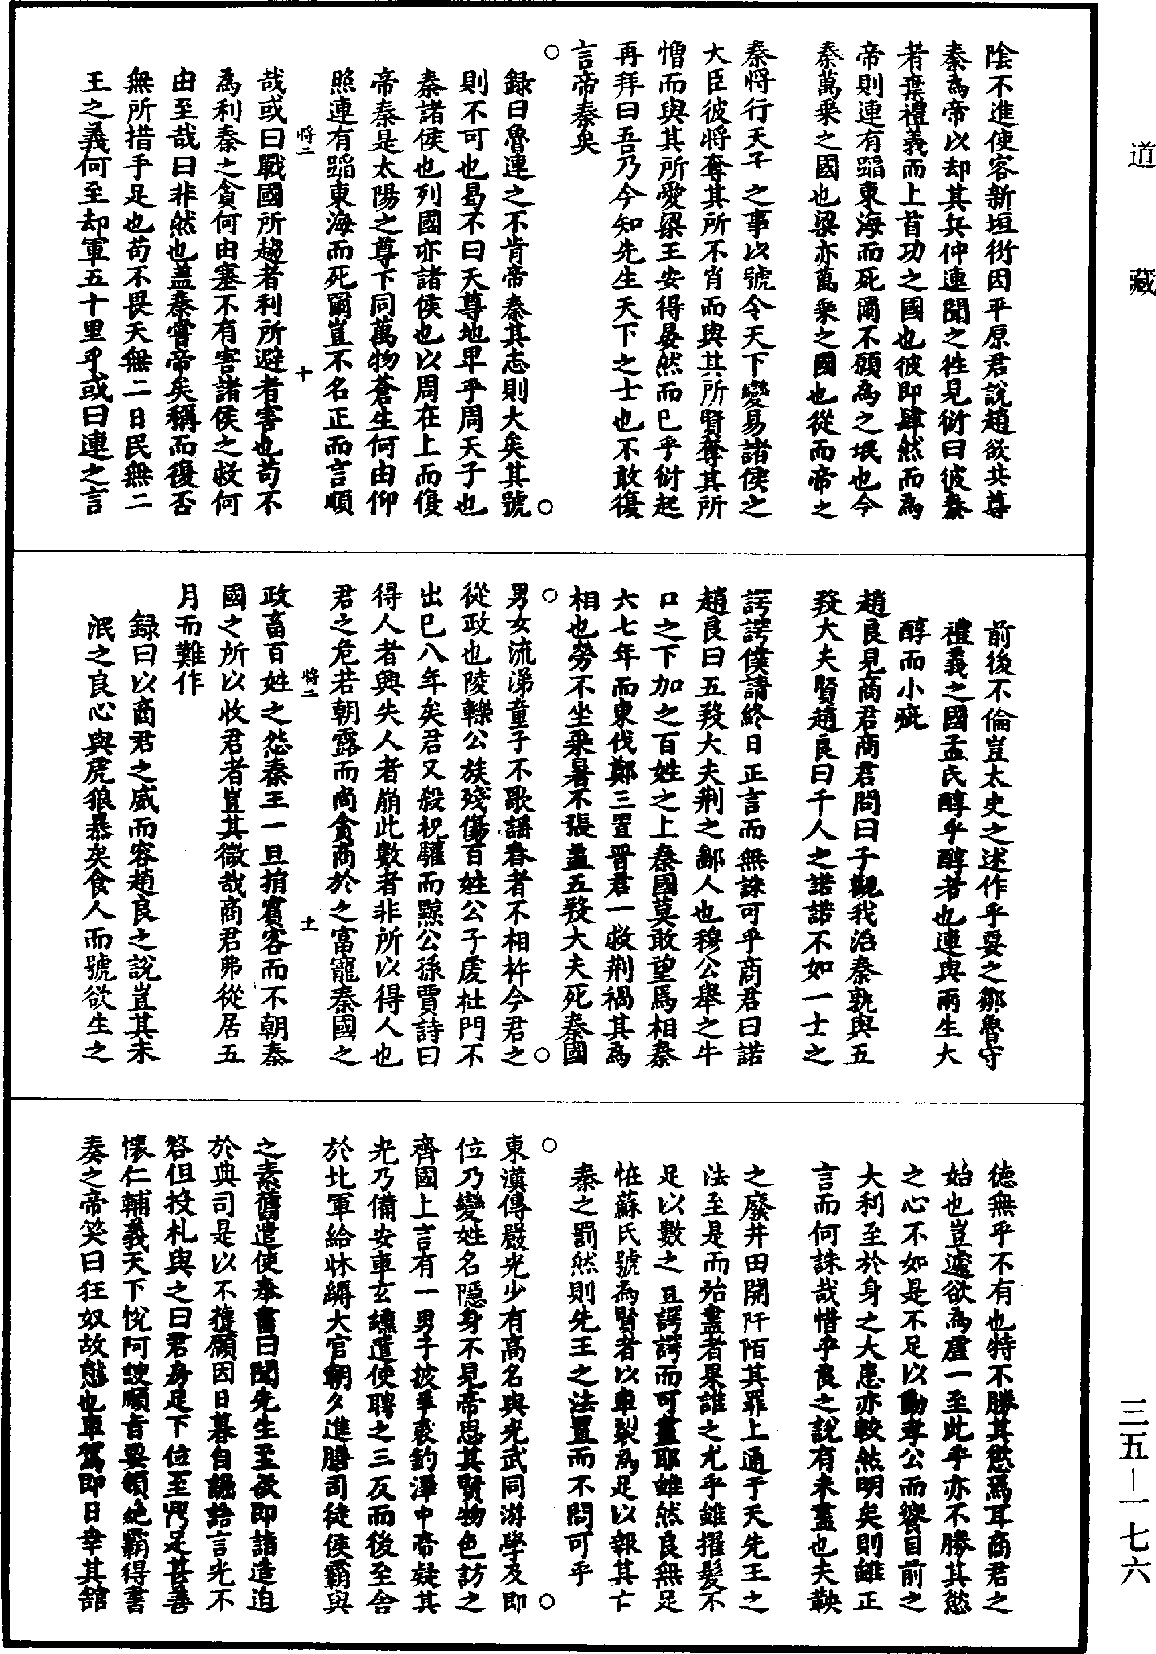 道藏
陰不進使客新垣衍因平原君說趙欲共尊
秦為帝以却其兵仲連聞之往見衍曰彼秦
者棄禮義而上首功之國也彼即肆然而為
帝則連有蹈東海而死爾不願為之氓也今
秦萬乘之國也梁亦萬乘之國也從而帝之
秦將行天子之事以號令天下變易諸侯之
大臣彼將奪其所不肖而與其所賢奪其所
憎而與其所愛梁王安得晏然而已乎衍起
再拜曰吾乃今知先生天下之士也不敢復
言帝秦矣
○
錄曰魯連之不肯帝秦其志則大矣其號
則不可也曷不曰天尊地卑乎周天子也
秦諸侯也列國亦諸侯也以周在上而復
帝秦是太陽之尊下同萬物蒼生何由仰
照連有蹈東海而死爾豈不名正而言順
將二 十
哉或曰戰國所趨者利所避者害也苟不
為利秦之貪何由塞不有害諸侯之救何
由至哉曰非然也蓋秦嘗帝矣稱而復否
無所措手足也苟不畏天無二日民無二
王之義何至却軍五十里乎或曰連之言
前後不倫豈太史之述作乎要之鄒魯守
禮義之國孟氏醇乎醇者也連與兩生大
醇而小疵
趙良見商君商君問曰子觀我治秦孰與五
羖大夫賢趙良曰千人之諾諾不如一士之
諤諤僕請終日正言而無誅可乎商君曰諾
趙良曰五羖大夫荆之鄙人也穆公舉之牛
口之下加之百姓之上秦國莫敢望焉相秦
六七年而東伐鄭三置晉君一救荆禍其為
相也勞不坐乘暑不張蓋五羖大夫死秦國
○
男女流涕童子不歌謠舂者不相杵今君之
從政也陵轢公族殘傷百姓公子虔杜門不
出已八年矣君又殺祝驩而黥公孫賈詩曰
得人者興失人者崩此數者非所以得人也
君之危若朝露而尚貪商於之富寵秦國之
將二 十一
政畜百姓之怨秦王一旦捐賓客而不朝秦
國之所以收君者豈其微哉商君弗從居五
月而難作
錄曰以商君之威而容趙良之說豈其未
泯之良心與虎狼暴矣食人而號欲生之
德無乎不有也特不勝其慾焉耳商君之
始也豈遽欲為虐一至此乎亦不勝其慾
之心不如是不足以動孝公而饗目前之
大利至於身之大患亦較然明矣則雖正
言而何誅哉惜乎良之說有未盡也夫鞅
之廢井田開阡陌其罪上通于天先王之
法至是而殆盡者果誰之尤乎雖擢髮不
足以數之且諤諤而可盡耶雖然良無足
恠蘇氏號為賢者以車裂為足以報其亡
秦之罰然則先王之法置而不問可乎
○
東漢傳嚴光少有高名與光武同游學及即
位乃變姓名隱身不見帝思其賢物色訪之
齊國上言有一男子披羊裘釣澤中帝疑其
光乃備安車玄纁遣使聘之三反而後至舍
於北軍給牀褥大官朝夕進膳司徒侯霸與
之素舊遣使奉書曰聞先生至欲即詣造迫
於典司是以不獲願因日暮自詘語言光不
答但投札與之曰君房足下位至鼎足甚善
懷仁輔義天下悅阿諛順旨要領絕霸得書
奏之帝笑曰狂奴故態也車駕即日幸其館
三五—一七六